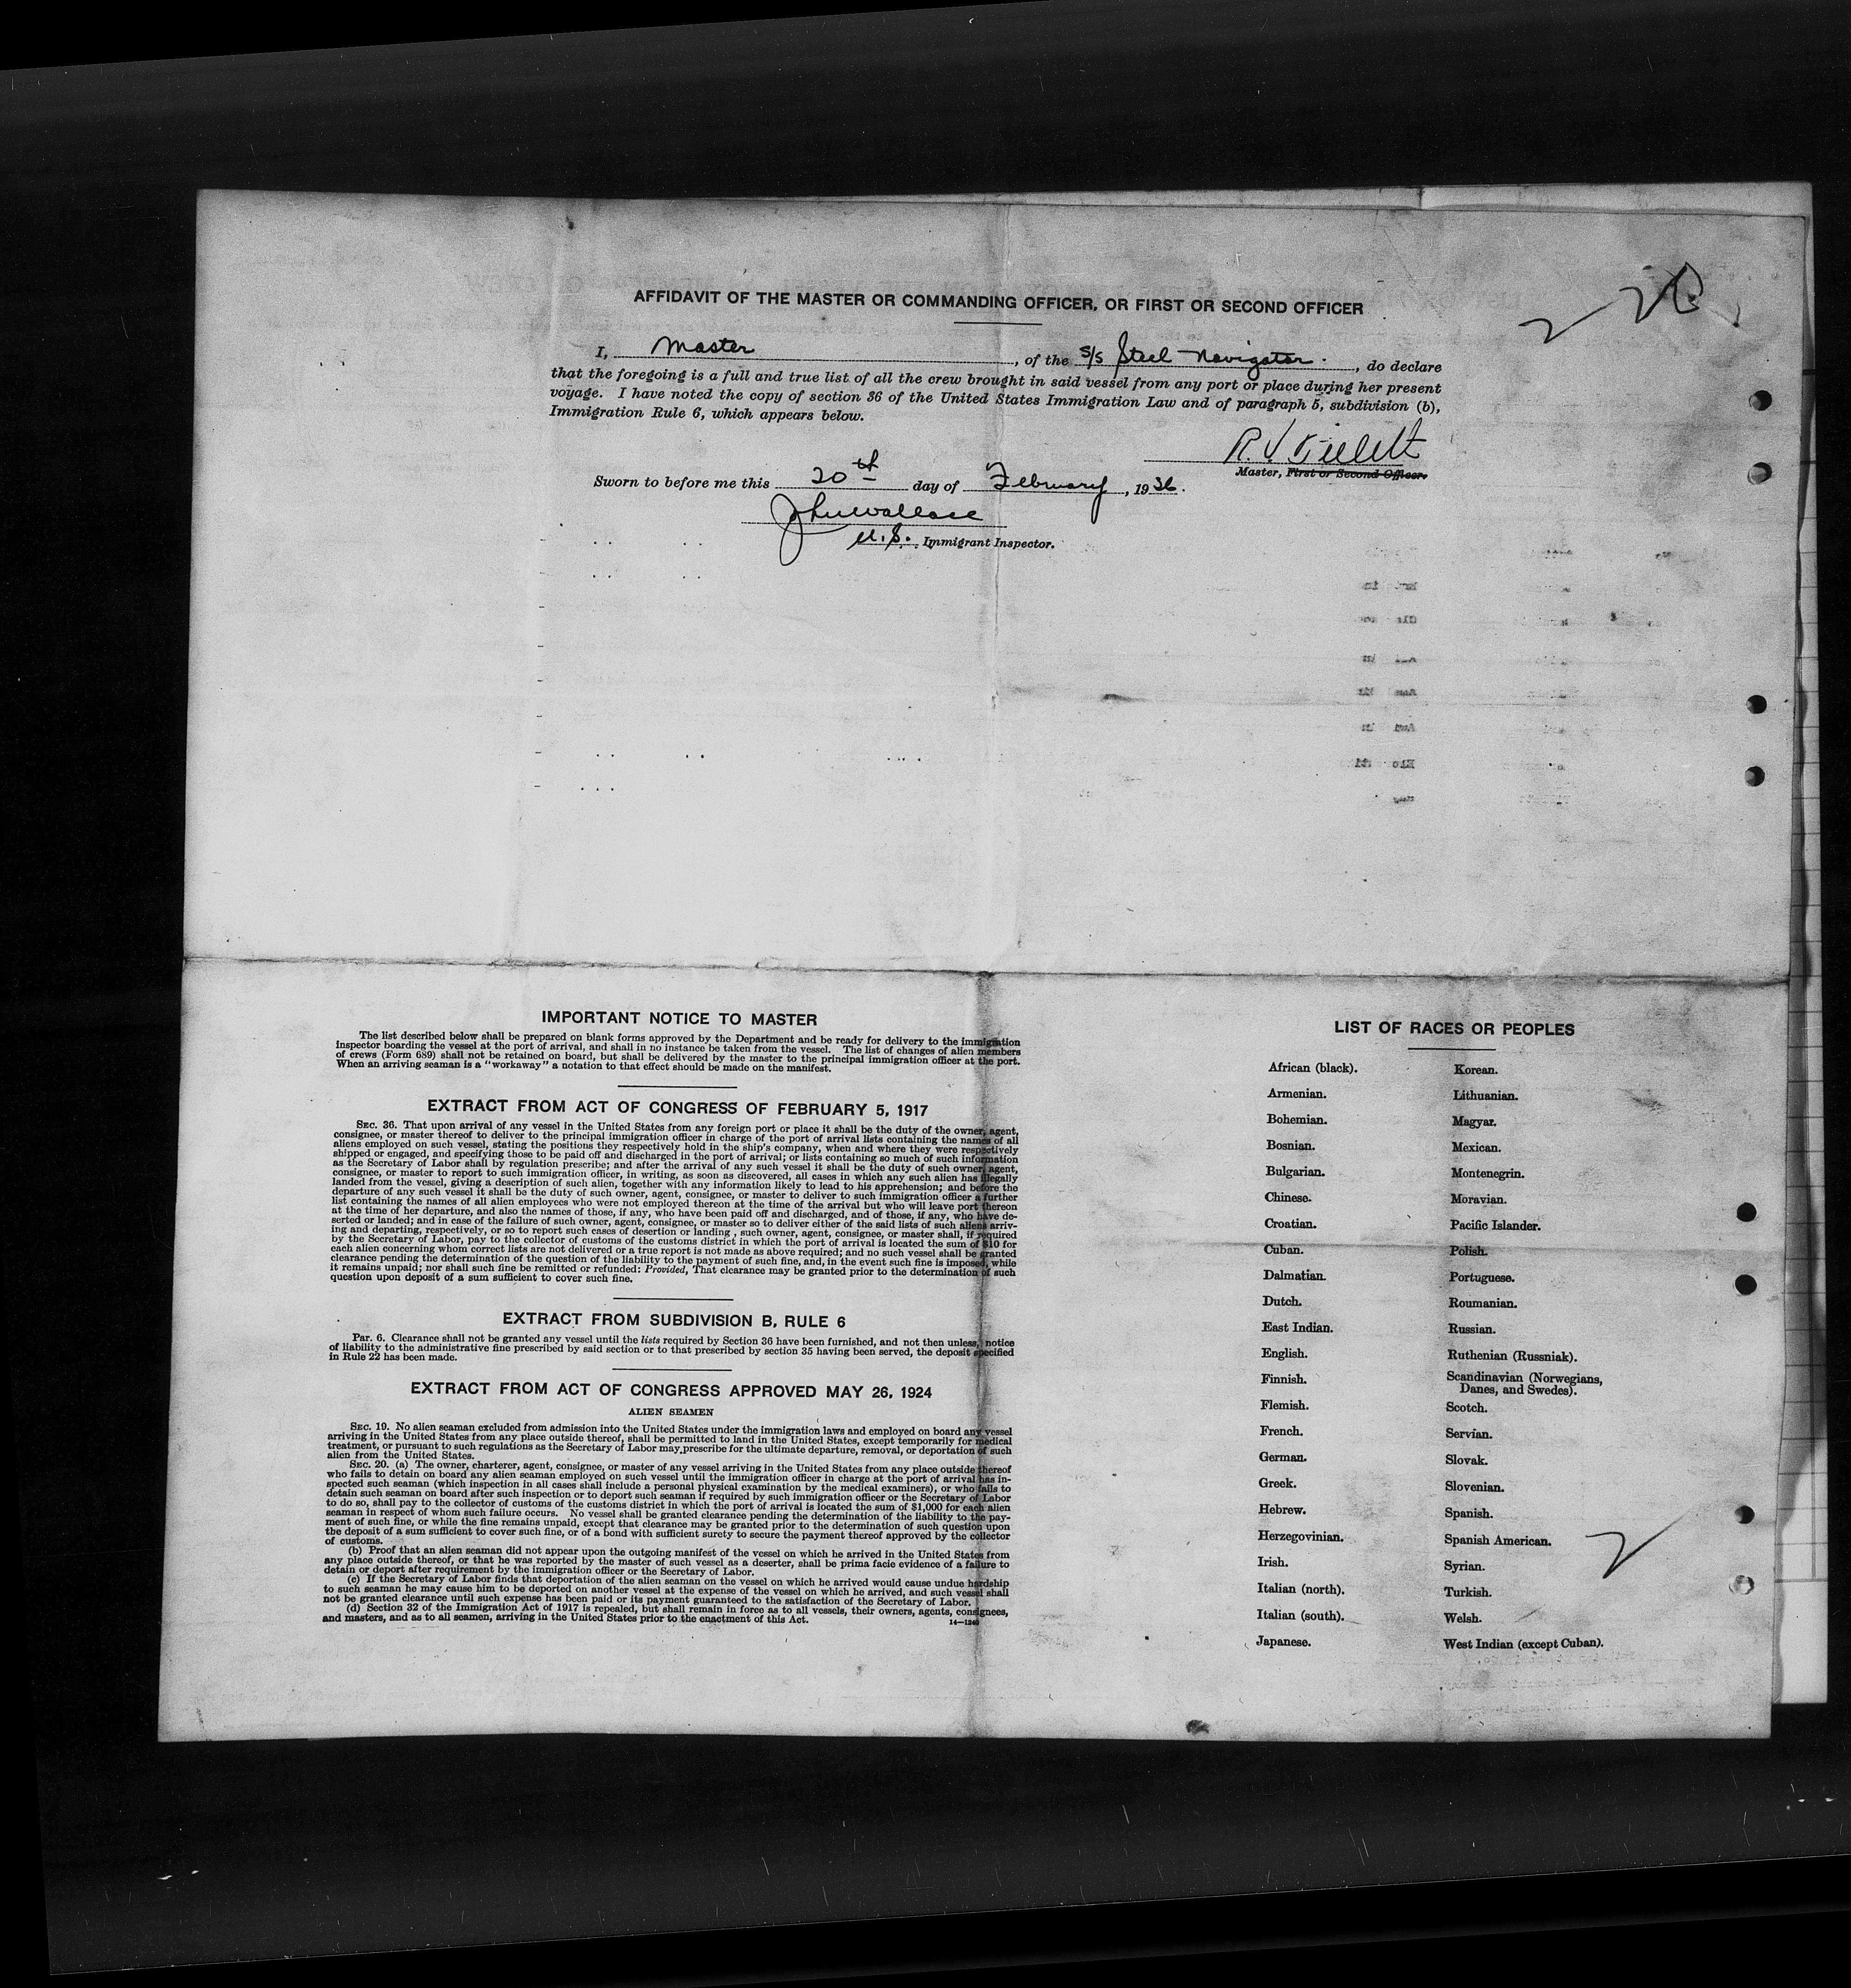 AFFIDAVIT OF THE MASTER OR COMMANDING OFFICER, OR FIRST OR SECOND OFFICER
I, Master, of the S/S Steel Navigator, do declare
that the foregoing is a full and true list of all the crew brought in said vessel from any port or place during her present
voyage. I have noted the copy of section 36 of the United States Immigration Law and of paragraph 5, subdivision (b),
Immigration Rule 6, which appears below.
R. V.
Master, First or Second Officer.
Sworn to before me this 20th day of February, 1936.
John Wallace
U.S. Immigrant Inspector.
IMPORTANT NOTICE TO MASTER
The list described below shall be prepared on blank forms approved by the Department and be ready for delivery to the immigration
inspector boarding the vessel at the port of arrival, and shall in no instance be taken from the vessel. The list of changes of alien members
of crews (Form 689) shall not be retained on board, but shall be delivered by the master to the principal immigration officer at the port.
When an arriving seaman is a "workaway" a notation to that effect should be made on the manifest.
EXTRACT FROM ACT OF CONGRESS OF FEBRUARY 5, 1917
SEC. 36. That upon arrival of any vessel in the United States from any foreign port or place it shall be the duty of the owner, agent,
consignee, or master thereof to deliver to the principal immigration officer in charge of the port of arrival lists containing the names of all
aliens employed on such vessel, stating the positions they respectively hold in the ship's company, when and where they were respectively
shipped or engaged, and specifying those to be paid off and discharged in the port of arrival; or lists containing so much of such information
as the Secretary of Labor shall by regulation prescribe; and after the arrival of any such vessel it shall be the duty of such owner, agent,
consignee, or master to report to such immigration officer, in writing, as soon as discovered, all cases in which any such alien has illegally
landed from the vessel, giving a description of such alien, together with any information likely to lead to his apprehension; and before the
departure of any such vessel it shall be the duty of such owner, agent, consignee, or master to deliver to such immigration officer a further
list containing the names of all alien employees who were not employed thereon at the time of the arrival but who will leave port thereon
at the time of her departure, and also the names of those, if any, who have been paid off and discharged, and of those, if any, who have de-
serted or landed; and in case of the failure of such owner, agent, consignee, or master so to deliver either of the said lists of such aliens arriv-
ing and departing, respectively, or so to report such cases of desertion or landing, such owner, agent, consignee, or master, shall, if required
by the Secretary of Labor, pay to the collector of customs of the customs district in which the port of arrival is located the sum of $10 for
each alien concerning whom correct lists are not delivered or a true report is not made as above required; and no such vessel shall be granted
clearance pending the determination of the question of the liability to the payment of such fine, and, in the event such fine is imposed, while
it remains unpaid; nor shall such fine be remitted or refunded: Provided, That clearance may be granted prior to the determination of such
question upon deposit of a sum sufficient to cover such fine.
EXTRACT FROM SUBDIVISION B, RULE 6
Par. 6. Clearance shall not be granted any vessel until the lists required by Section 36 have been furnished, and not then unless, notice
of liability to the administrative fine prescribed by said section or to that prescribed by section 35 having been served, the deposit specified
in Rule 22 has been made.
EXTRACT FROM ACT OF CONGRESS APPROVED MAY 26, 1924
ALIEN SEAMEN
SEC. 19. No alien seaman excluded from admission into the United States under the immigration laws and employed on board any vessel
arriving in the United States from any place outside thereof, shall be permitted to land in the United States, except temporarily for medical
treatment, or pursuant to such regulations as the Secretary of Labor may prescribe for the ultimate departure, removal, or deportation of such
alien from the United States.
SEC. 20. (a) The owner, charterer, agent, consignee, or master of any vessel arriving in the United States from any place outside thereof
who fails to detain on board any alien seaman employed on such vessel until the immigration officer in charge at the port of arrival has in-
spected such seaman (which inspection in all cases shall include a personal physical examination by the medical examiners), or who fails to
detain such seaman on board after such inspection or to deport such seaman if required by such immigration officer or the Secretary of Labor
to do so, shall pay to the collector of customs of the customs district in which the port of arrival is located the sum of $1,000 for each alien
seaman in respect of whom such failure occurs. No vessel shall be granted clearance pending the determination of the liability to the pay-
ment of such fine, or while the fine remains unpaid, except that clearance may be granted prior to the determination of such question upon
the deposit of a sum sufficient to cover such fine, or of a bond with sufficient surety to secure the payment thereof approved by the collector
of customs.
(b) Proof that an alien seaman did not appear upon the outgoing manifest of the vessel on which he arrived in the United States from
any place outside thereof, or that he was reported by the master of such vessel as a deserter, shall be prima facie evidence of a failure to
detain or deport after requirement by the immigration officer or the Secretary of Labor.
(c) If the Secretary of Labor finds that deportation of the alien seaman on the vessel on which he arrived would cause undue hardship
to such seaman he may cause him to be deported on another vessel at the expense of the vessel on which he arrived, and such vessel shall
not be granted clearance until such expense has been paid or its payment guaranteed to the satisfaction of the Secretary of Labor.
(d) Section 32 of the Immigration Act of 1917 is repealed, but shall remain in force as to all vessels, their owners, agents, consignees,
and masters, and as to all seamen, arriving in the United States prior to the enactment of this Act.
LIST OF RACES OR PEOPLES
African (black). Korean.
Armenian. Lithuanian.
Bohemian. Magyar.
Bosnian. Mexican.
Bulgarian. Montenegrin.
Chinese. Moravian.
Croatian. Pacific Islander.
Cuban. Polish.
Dalmatian. Portuguese.
Dutch. Roumanian.
East Indian. Russian.
English. Ruthenian (Russniak).
Finnish. Scandinavian (Norwegians,
Danes, and Swedes).
Flemish. Scotch.
French. Servian.
German. Slovak.
Greek. Slovenian.
Hebrew. Spanish.
Herzegovinian. Spanish American.
Irish. Syrian.
Italian (north). Turkish.
Italian (south). Welsh.
Japanese. West Indian (except Cuban).